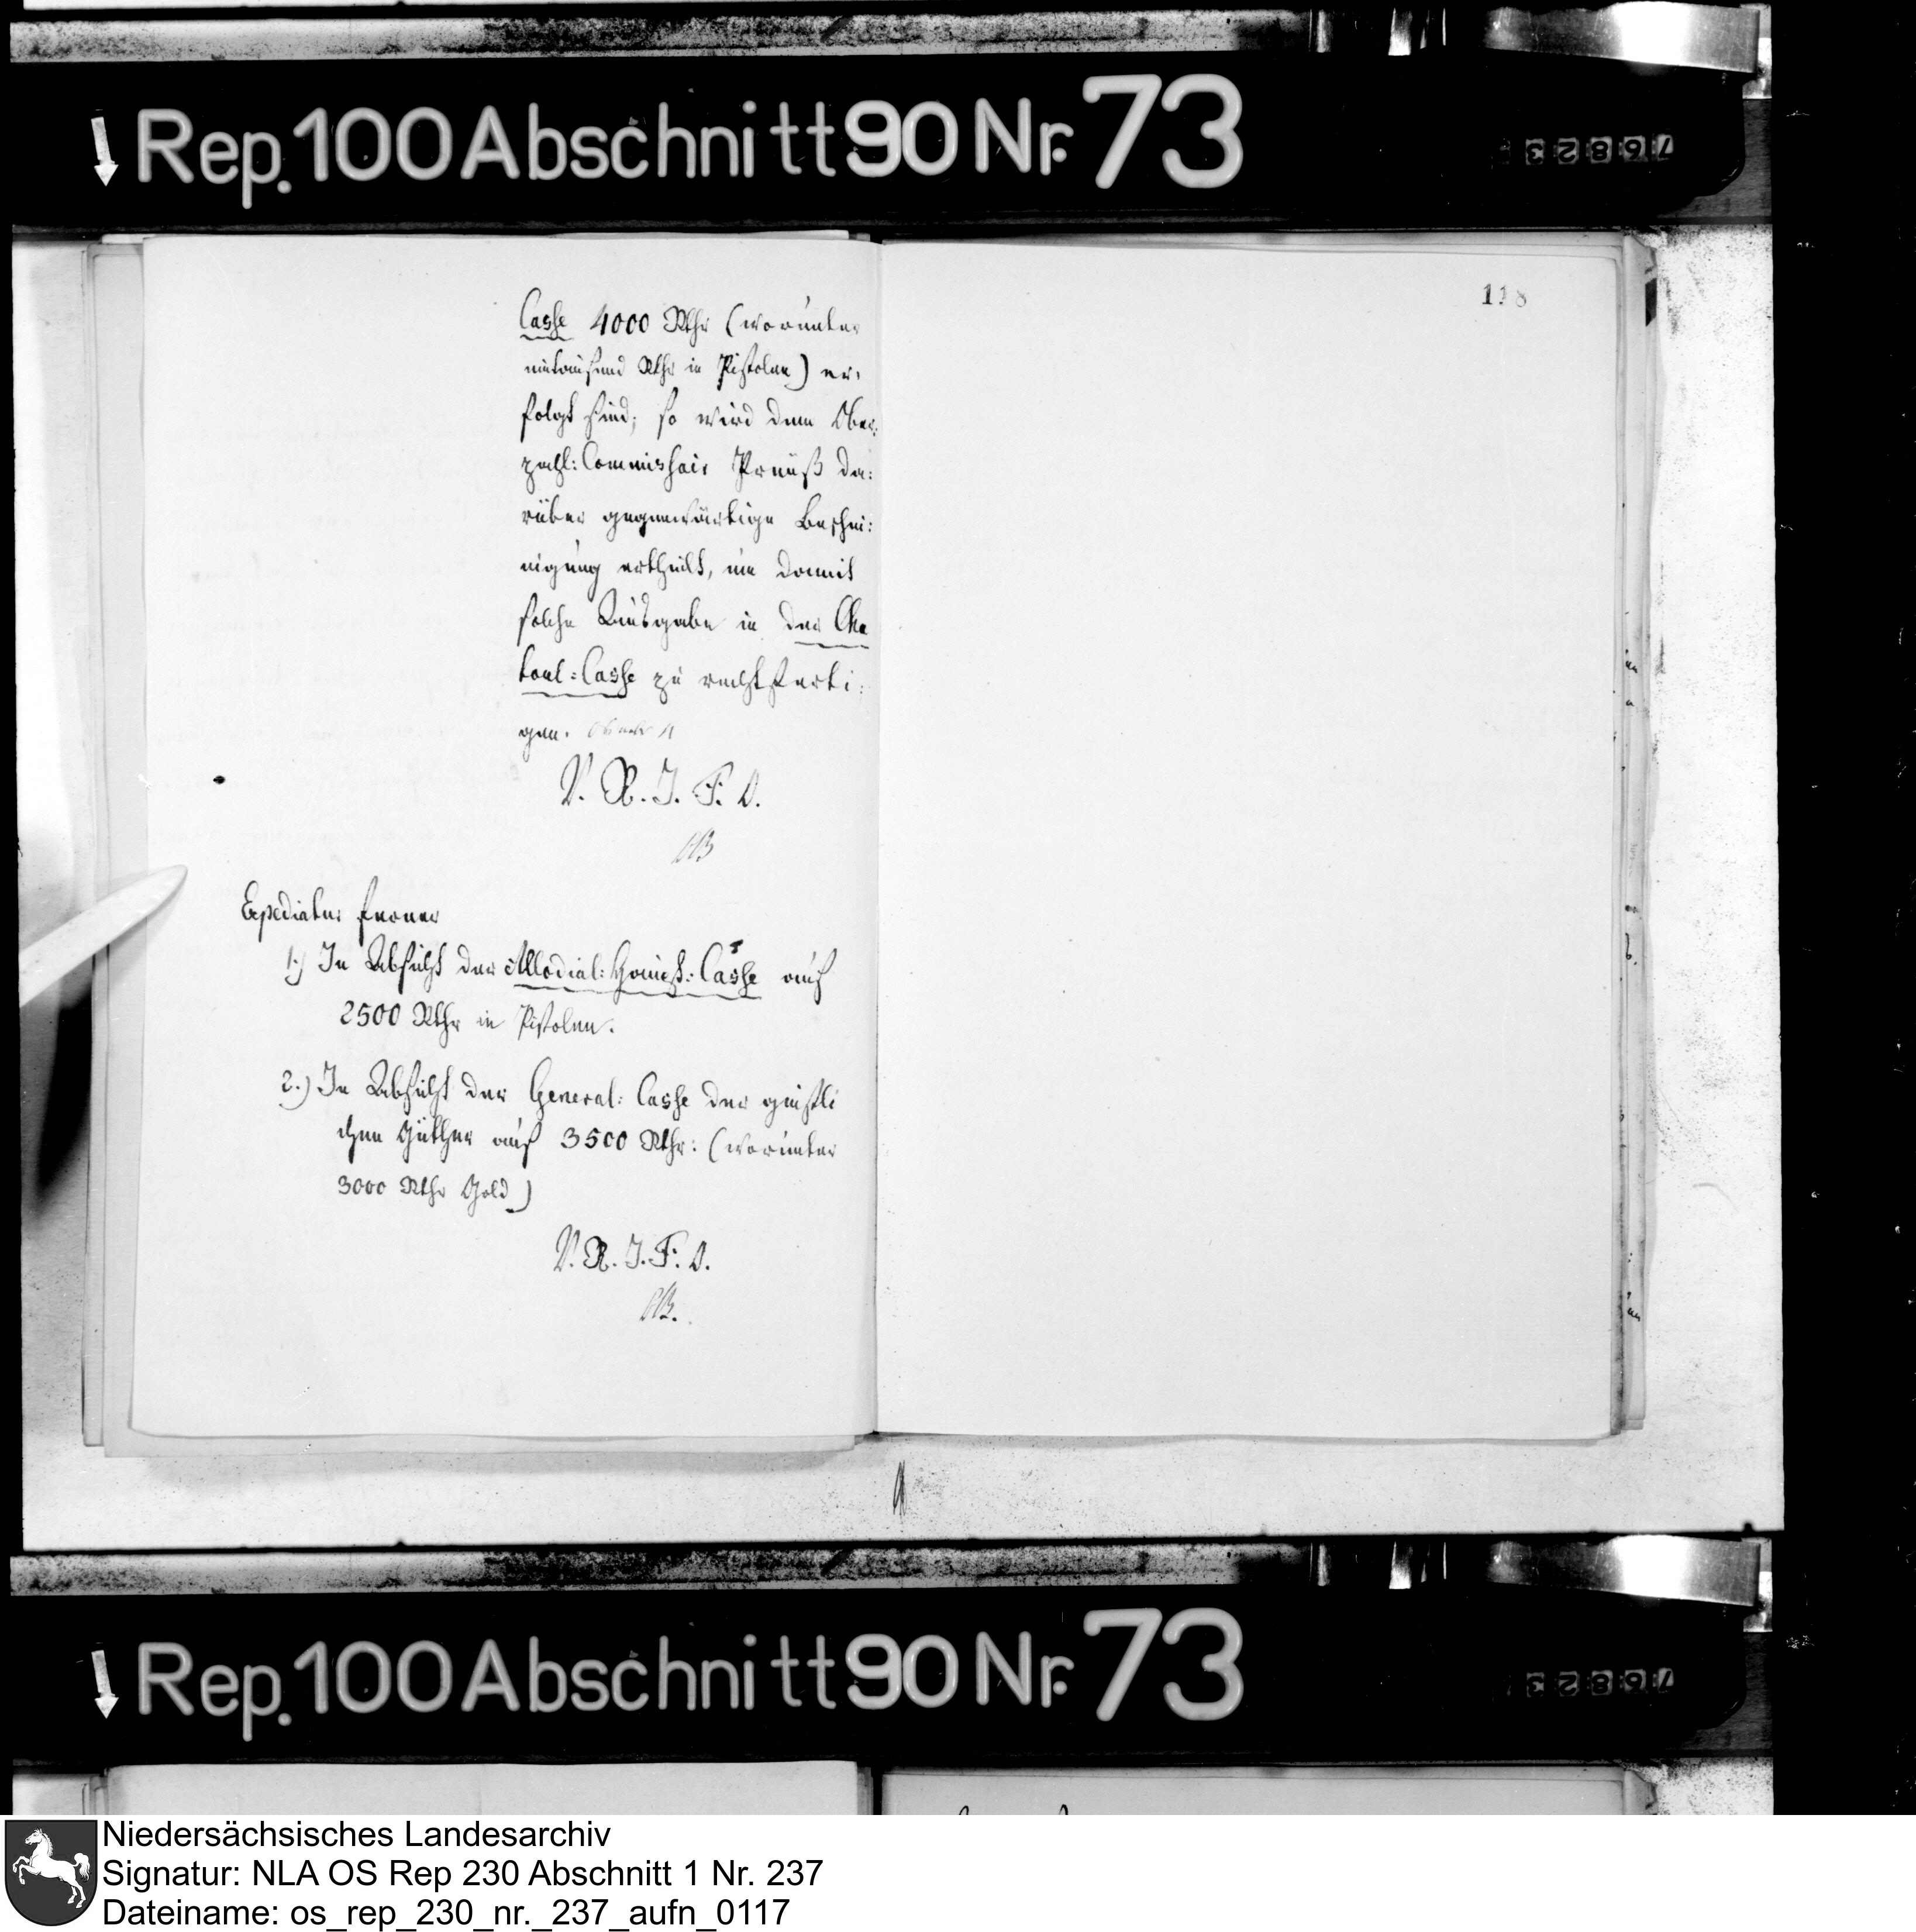 Rep. 100 Abschnitt 90 Nr. 73
76823
118
Casse 4000 Rthr (worunter
eintausend Rthr in Pistolen) er,
folgt sind; so wird dem Ober:
zahl: Commissair Preuß da:
rüber gegenwärtige Beschei:
nigung ertheilt, um damit
solche Ausgabe in der Cha
toul: Casse zu rechtferti:
gen.
V. R. I. F. O.
Expediatur ferner
1.) In Absicht der Allodial: Haupt: Casse auf
2500 Rthr in Pistolen.
2.) In Absicht der General: Casse der geistli
chen Güther auf 3500 Rthr: (worunter
3000 Rthr Gold)
V. R. I. F. O.
Rep. 100 Abschnitt 90 Nr. 73
76823
Niedersächsisches Landesarchiv
Signatur: NLA OS Rep 230 Abschnitt 1 Nr. 237
Dateiname: os_rep_230_nr._237_aufn_0117